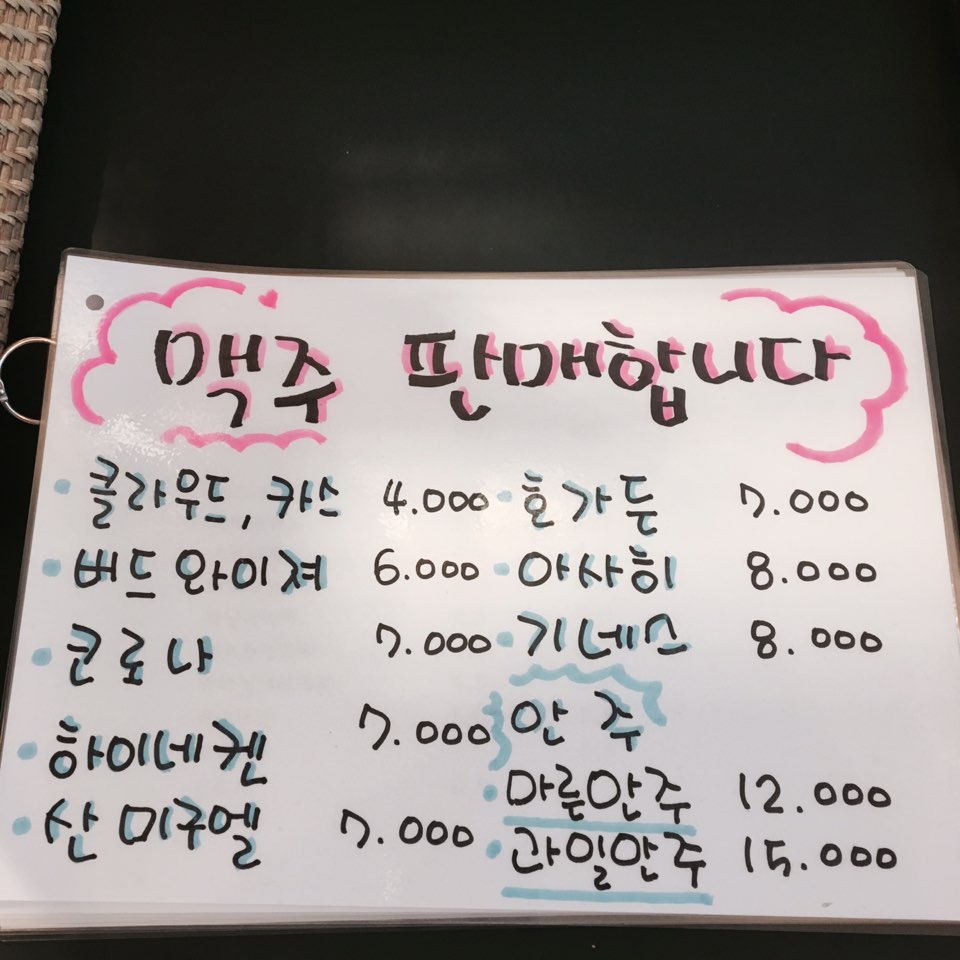 맥주 판매합니다
· 클라우드, 카스 4.000
· 버드와이져 6.000
· 코로나 7.000
· 하이네켄 7.000
· 산미구엘 7.000
· 호가든 7.000
· 아사히 8.000
· 기네스 8.000
안주
· 마른안주 12.000
· 과일안주 15.000